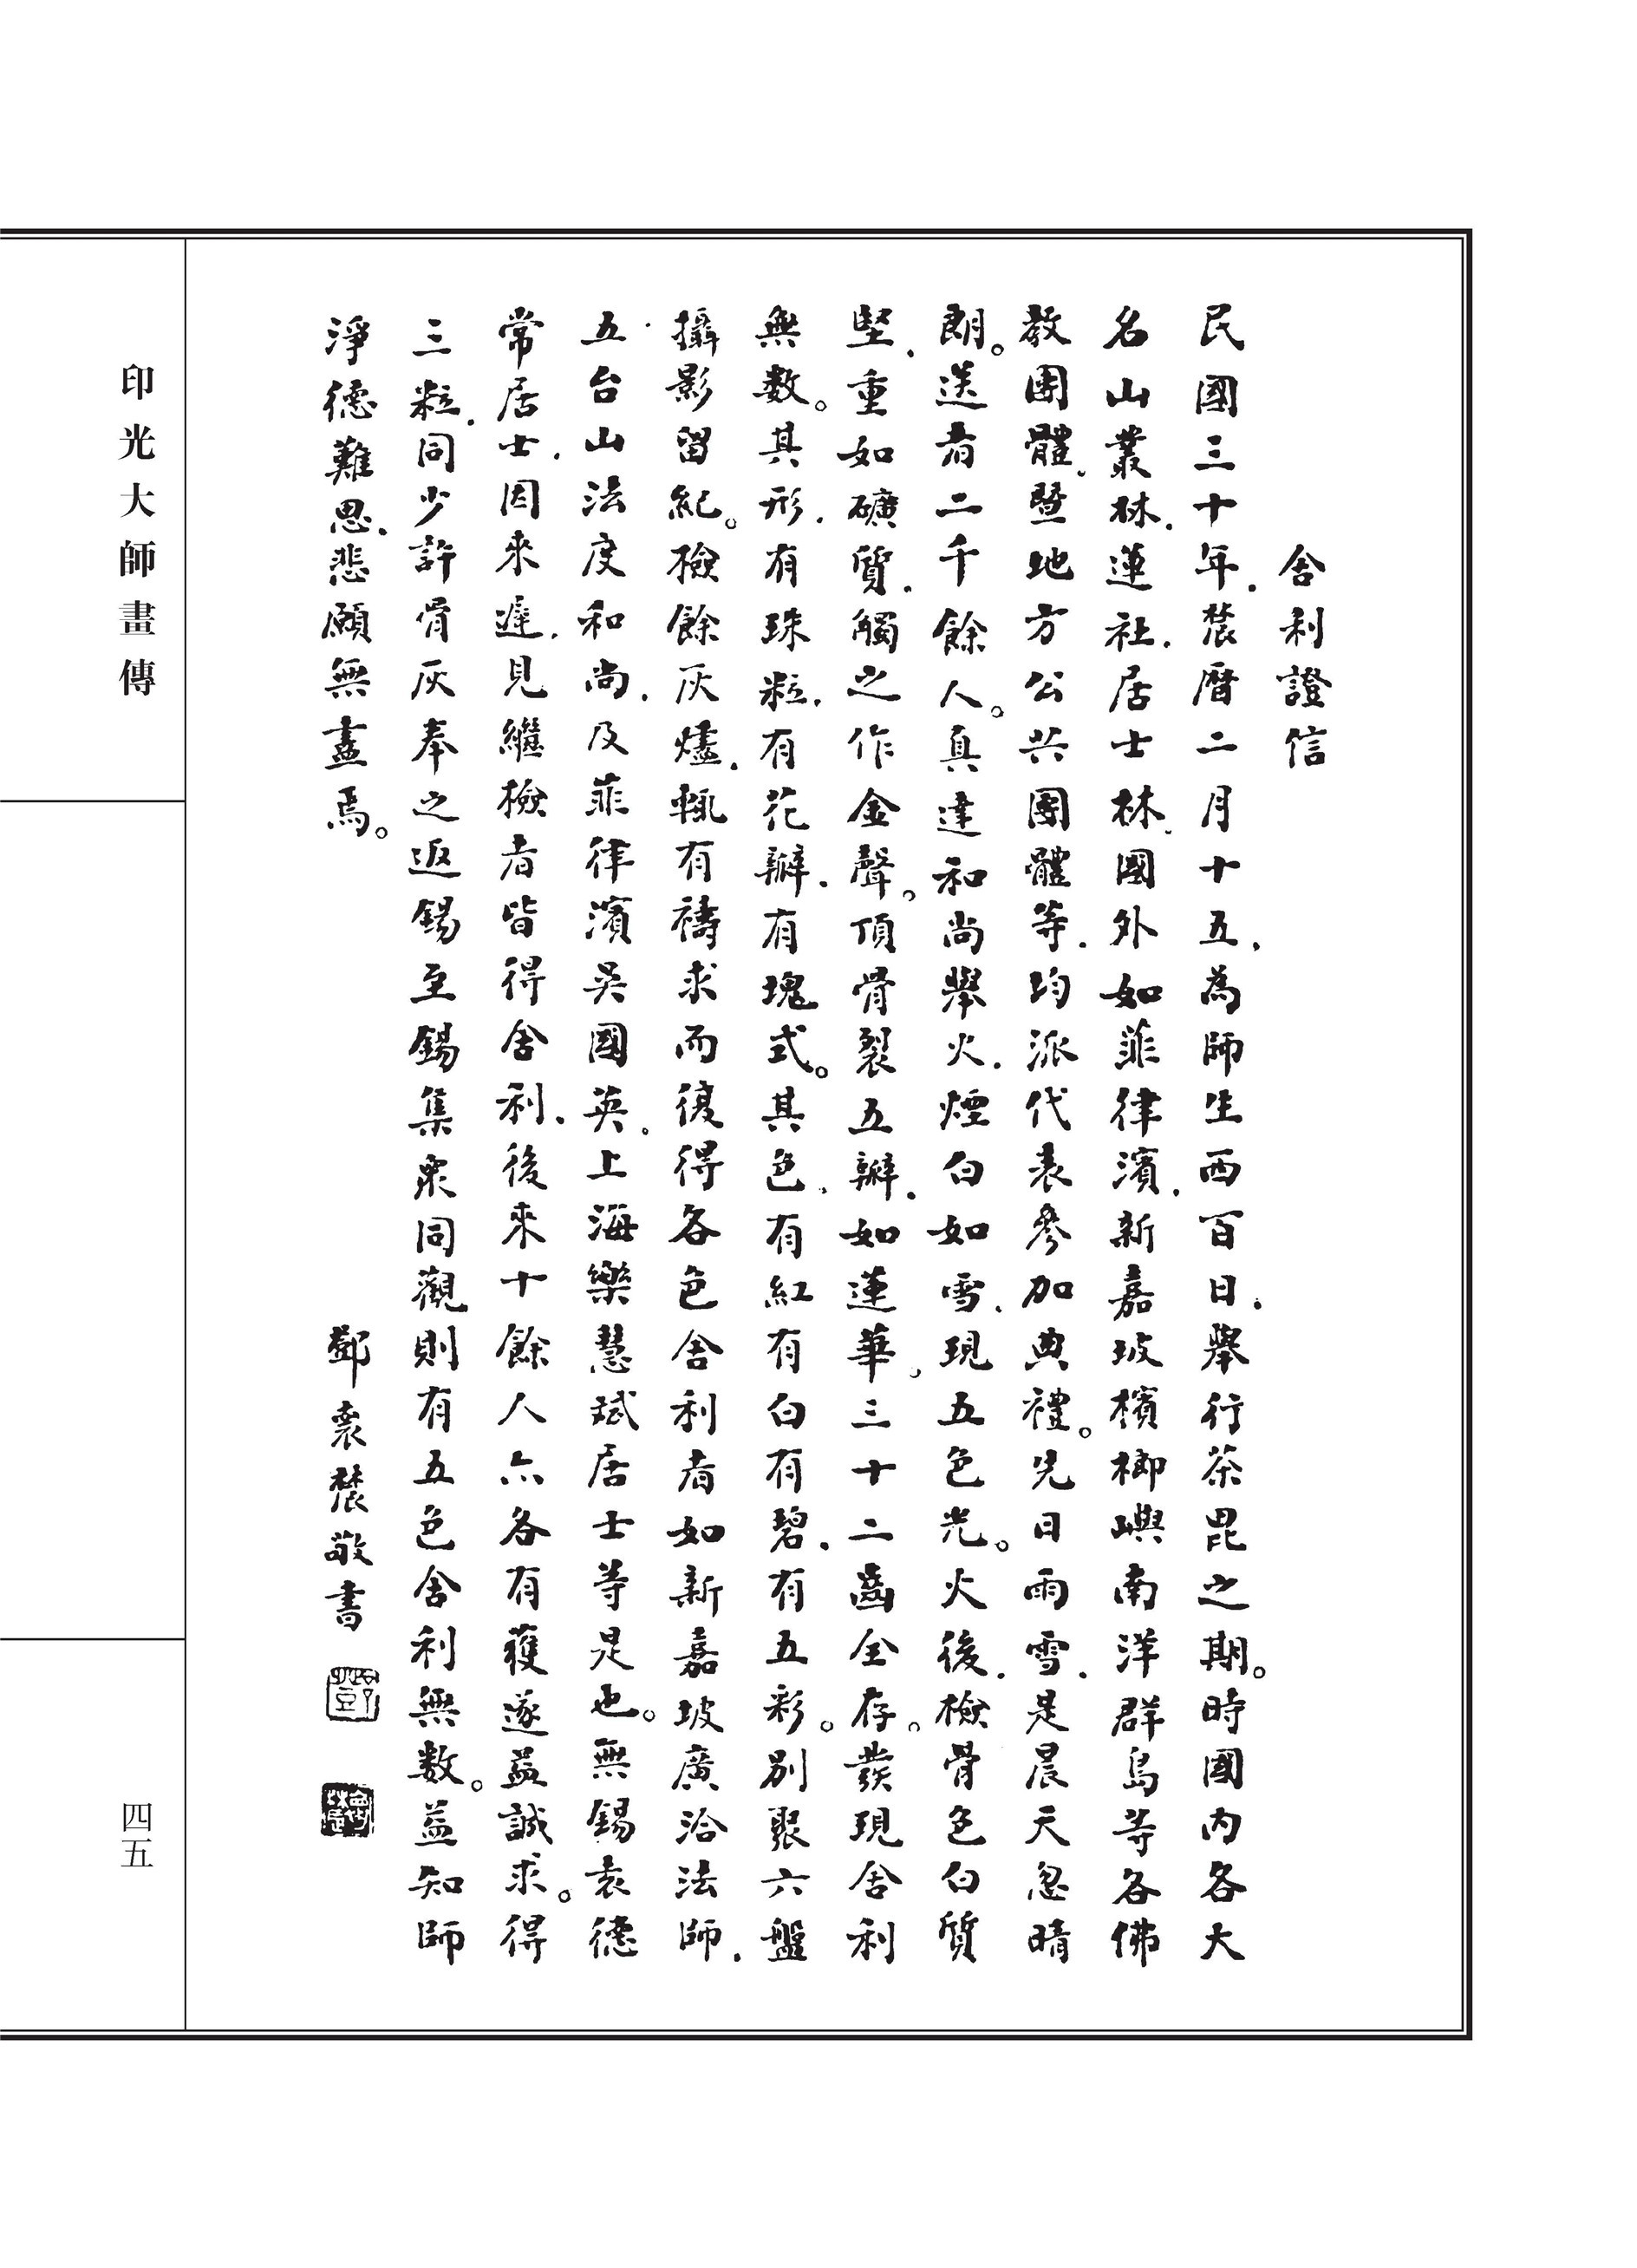 舍利證信
民國三十年.農曆二月十五.為師生西百日.舉行荼毘之期。時國內各大
名山叢林.蓮社.居士林.國外如菲律濱.新嘉玻檳榔嶼南洋群島等各佛
教團體.暨地方公共團體等.均派代表參加典禮。先日雨雪.是晨天忽晴
朗。送者二千餘人。真達和尚舉火.煙白如雪.現五色光。火後.檢骨色白質
堅.重如礦質.觸之作金聲。頂骨裂五瓣.如蓮華。三十二齒全存。發現舍利
無數。其形.有珠粒.有花瓣.有塊式。其色.有紅有白有碧.有五彩。別聚六盤
攝影留紀。檢餘灰燼.輒有禱求而復得各色舍利者如新嘉玻廣洽法師.
五台山法度和尚.及菲律濱吳國英.上海樂慧斌居士等是也。無錫袁德
常居士.因來遲.見繼檢者皆得舍利.後來十餘人亦各有獲遂益誠求。得
三粒.同少許骨灰奉之返錫至錫集眾同觀則有五色舍利無數。益知師
淨德難思.悲願無盡焉。
鄧 農敬書
印光大師畫傳
四五